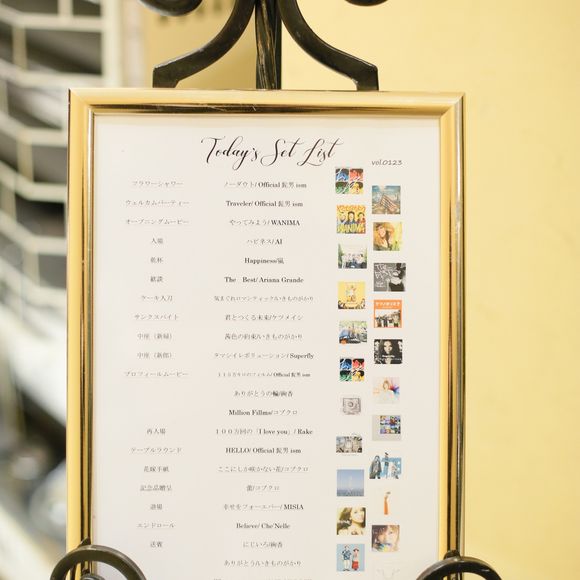 Today's Set List
vol.0123
フラワーシャワー ノーダウト/Official 髭男 ism
ウェルカムパーティー Traveler/Official 髭男 ism
オープニングムービー やってみよう/WANIMA
入場 ハピネス/AI
乾杯 Happiness/嵐
歓談 The Best/Ariana Grande
ケーキ入刀 気まぐれロマンティック/いきものがかり
サンクスバイト 君とつくる未来/ケツメイシ
中座（新婦） 茜色の約束/いきものがかり
中座（新郎） タマシイレボリューション/Superfly
プロフィールムービー 115万キロのフィルム/Official 髭男 ism
ありがとうの輪/絢香
Million Fillms/コブクロ
再入場 １００万回の「I love you」/Rake
テーブルラウンド HELLO/Official 髭男 ism
花嫁手紙 ここにしか咲かない花/コブクロ
記念品贈呈 蕾/コブクロ
退場 幸せをフォーエバー/MISIA
エンドロール Believe/Che'Nelle
送賓 にじいろ/絢香
ありがとう/いきものがかり